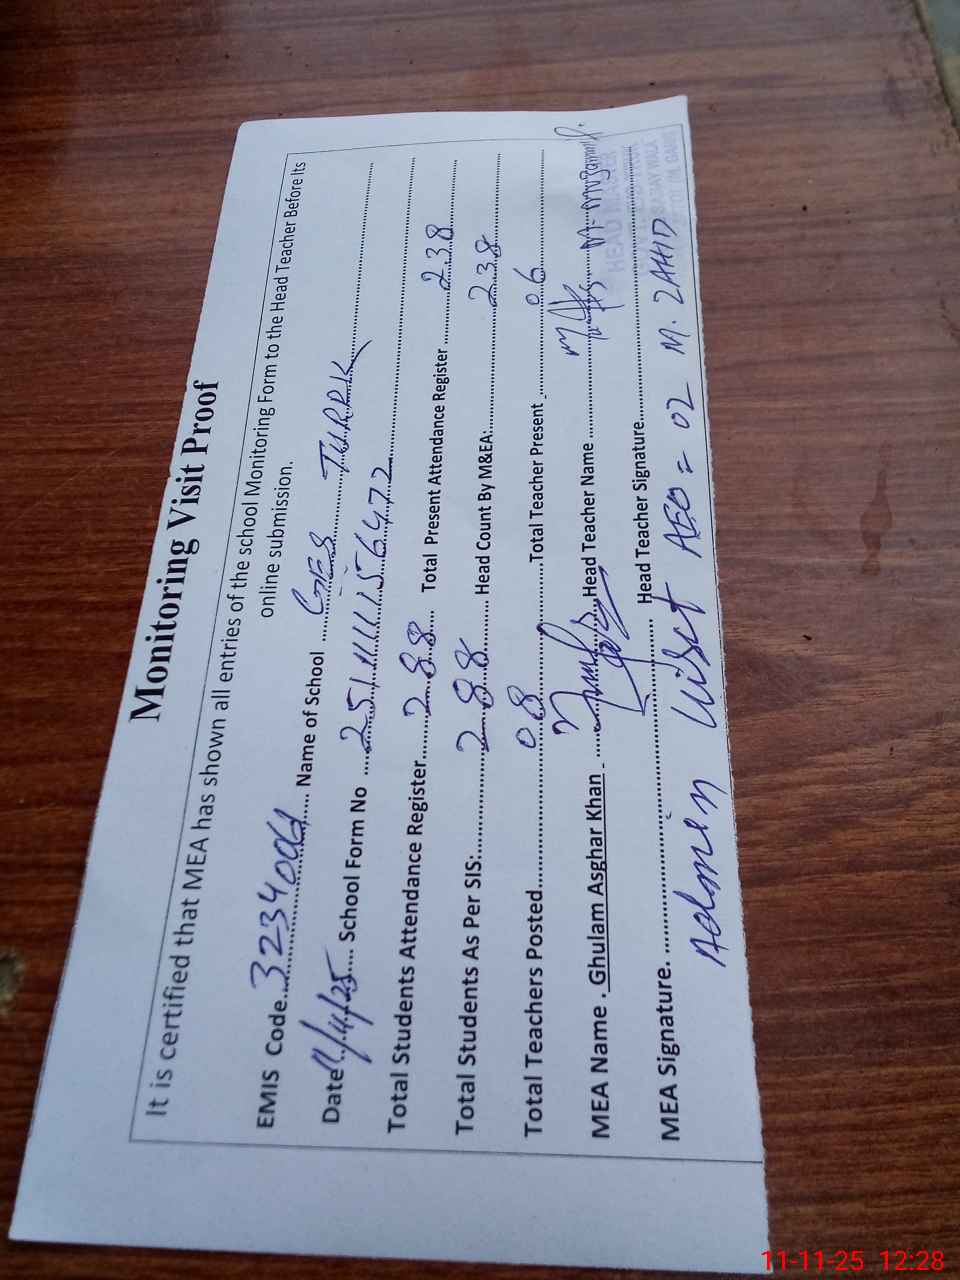 Monitoring Visit Proof
It is certified that MEA has shown all entries of the school Monitoring Form to the Head Teacher Before Its
online submission.
EMIS Code 32340061 Name of School GES TURRK
Date 11/11/25 School Form No 2511111156472
Total Students Attendance Register 288 Total Present Attendance Register 238
Total Students As Per SIS: 288 Head Count By M&EA: 238
Total Teachers Posted 08 Total Teacher Present 06
MEA Name . Ghulam Asghar Khan Head Teacher Name
MEA Signature. Head Teacher Signature
HEAD
Admin Visit AEO = 02 M. ZAHID
11-11-25 12:28